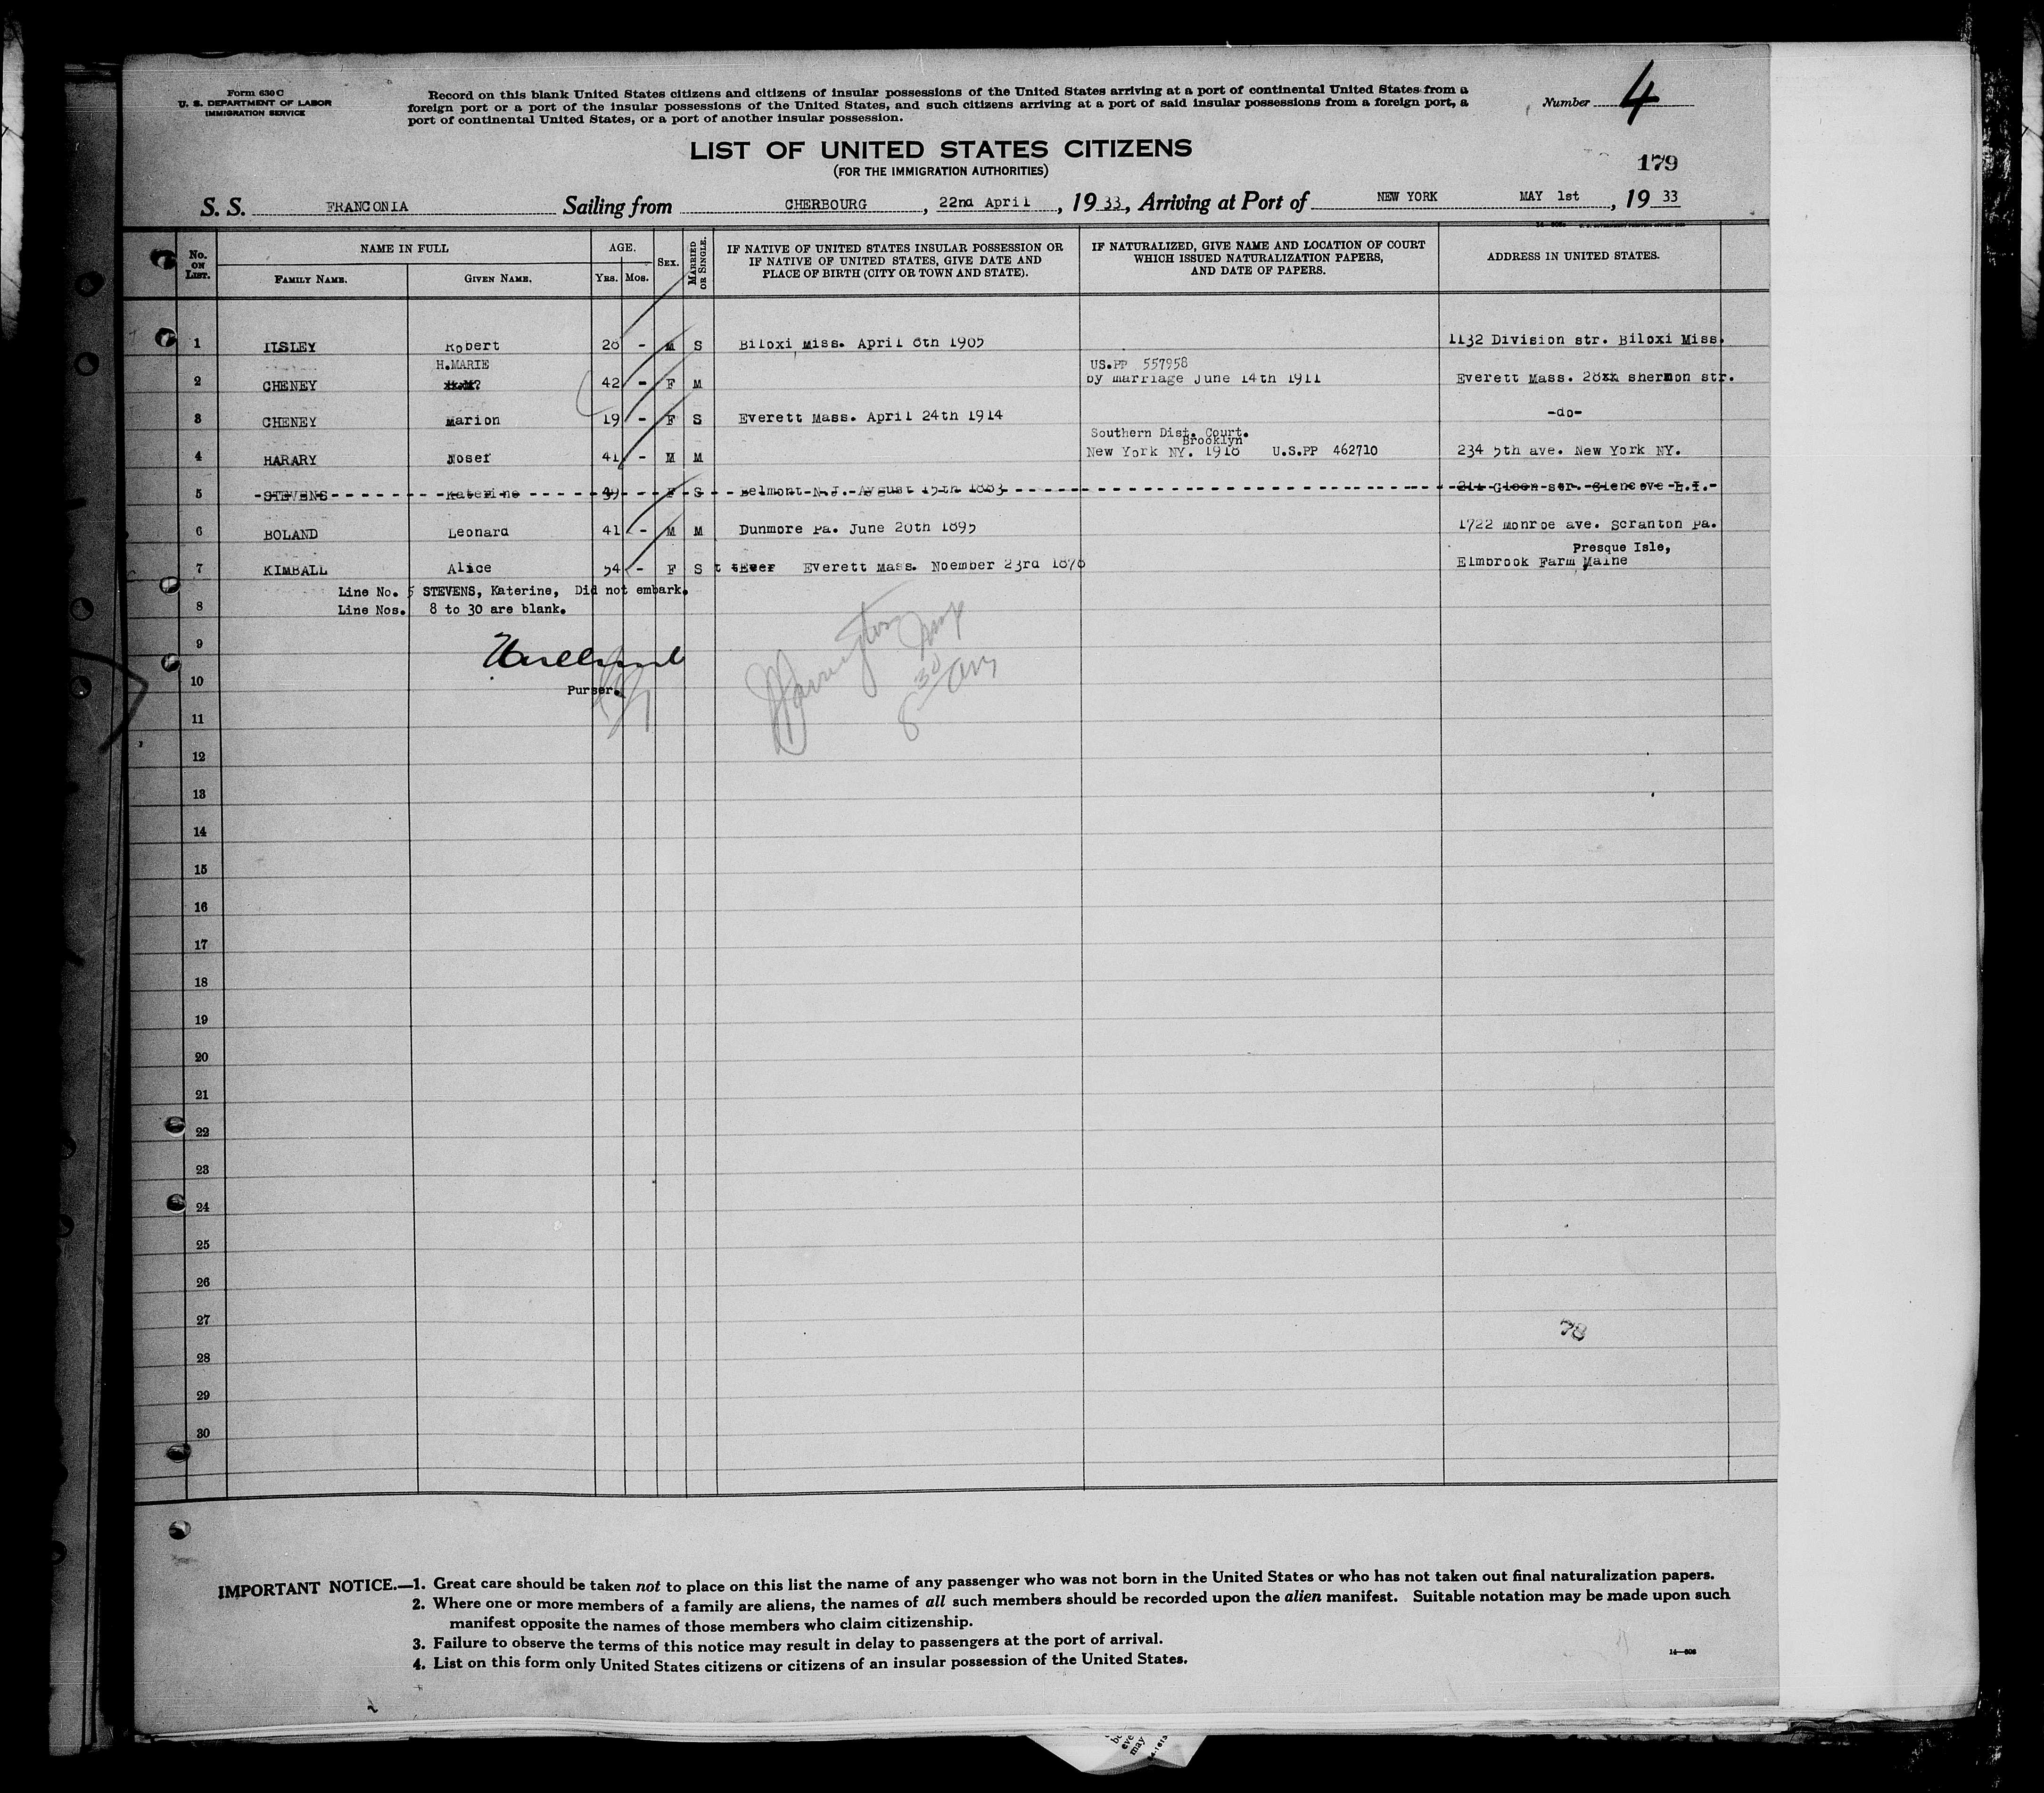 Form 630 C
U. S. DEPARTMENT OF LABOR
IMMIGRATION SERVICE
Record on this blank United States citizens and citizens of insular possessions of the United States arriving at a port of continental United States from a
foreign port or a port of the insular possessions of the United States, and such citizens arriving at a port of said insular possessions from a foreign port, a
port of continental United States, or a port of another insular possession.
Number 4
LIST OF UNITED STATES CITIZENS
(FOR THE IMMIGRATION AUTHORITIES)
179
S. S. FRANCONIA Sailing from CHERBOURG, 22nd April, 1933, Arriving at Port of NEW YORK MAY 1st, 1933
No. ON LIST. NAME IN FULL FAMILY NAME. GIVEN NAME. AGE. YRS. MOS. SEX. MARRIED OR SINGLE. IF NATIVE OF UNITED STATES INSULAR POSSESSION OR IF NATIVE OF UNITED STATES, GIVE DATE AND PLACE OF BIRTH (CITY OR TOWN AND STATE). IF NATURALIZED, GIVE NAME AND LOCATION OF COURT WHICH ISSUED NATURALIZATION PAPERS, AND DATE OF PAPERS. ADDRESS IN UNITED STATES.
1 ILSLEY Robert 28 - M S Biloxi Miss. April 8th 1905 1132 Division str. Biloxi Miss.
H.MARIE US.PP 557958
2 CHENEY 42 - F M by marriage June 14th 1911 Everett Mass. 28xx shermon str.
3 CHENEY Marion 19 - F S Everett Mass. April 24th 1914 -do-
Southern Dist. Court.
Brooklyn
4 HARARY Josef 41 - M M New York NY. 1918 U.S.PP 462710 234 5th ave. New York NY.
5 STEVENS Katerine 49 - F S Belmont N.J. August 15th 1883 Glencove L.I.
6 BOLAND Leonard 41 - M M Dunmore Pa. June 20th 1895 1722 Monroe ave. Scranton Pa.
Presque Isle,
7 KIMBALL Alice 54 - F S t tEver Everett Mass. Noember 23rd 1878 Elmbrook Farm Maine
Line No. 5 STEVENS, Katerine, Did not embark.
8 Line Nos. 8 to 30 are blank.
9
10 Purser.
11
12
13
14
15
16
17
18
19
20
21
22
23
24
25
26
27 78
28
29
30
IMPORTANT NOTICE.—1. Great care should be taken not to place on this list the name of any passenger who was not born in the United States or who has not taken out final naturalization papers.
2. Where one or more members of a family are aliens, the names of all such members should be recorded upon the alien manifest. Suitable notation may be made upon such
manifest opposite the names of those members who claim citizenship.
3. Failure to observe the terms of this notice may result in delay to passengers at the port of arrival.
4. List on this form only United States citizens or citizens of an insular possession of the United States.
14—608